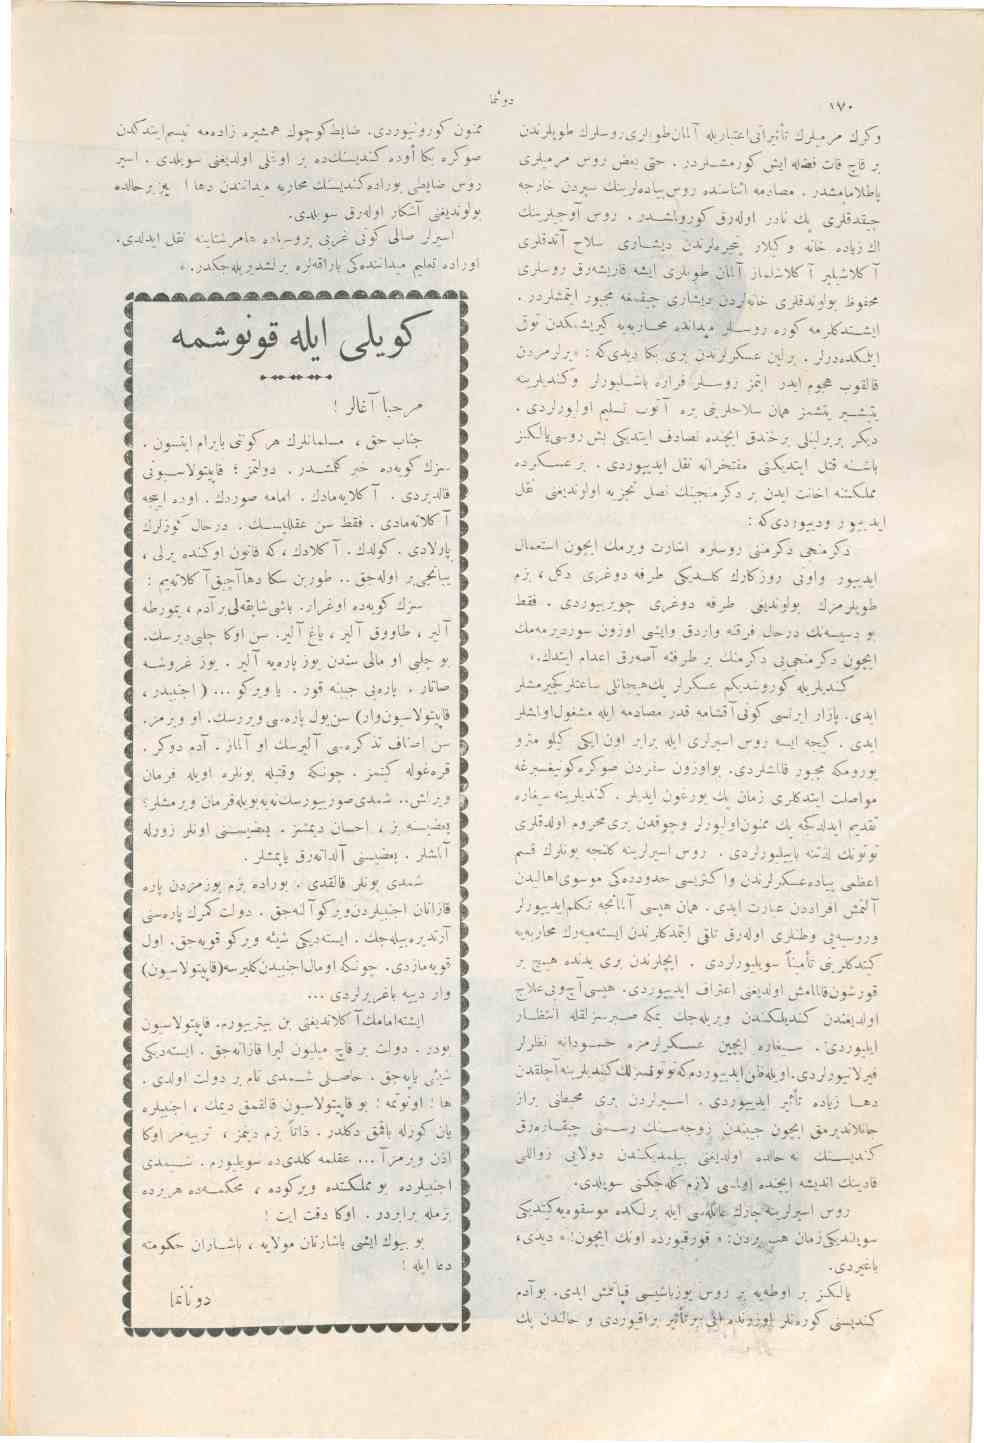 ١٧٠
دونما
وكرك مرميلرك تأثيراتى اعتباريله آلمان طوپلرى روسلرك طوپلرندن
بر قاچ قات فضله ايش كورمشلردر . حتى بعض روس مرميلرى
پاطلامامشدر . مصادمه اثناسنده روس پياده‌لرينك سپردن خارجه
چيقدقلرى پك نادر اوله‌رق كورولمشدر . روس آوجيلرينك
اك زياده خانه و كيلار پنجره‌لرندن ديشارى سلاح آتدقلرى
آكلاشيلير آكلاشلماز آلمان طوپلرى ايشه قاريشه‌رق روسلرى
محفوظ بولوندقلرى خانه‌لردن ديشارى چيقمغه مجبور ايتمشلردر .
ايشتدكلرمه كوره روسلر ميدانده محاربه‌يه كيريشمكدن توقى
ايتمكده‌درلر . برلين عسكرلرندن برى بكا ديدى‌كه : «يرلرمزدن
قالقوب هجوم ايدر ايتمز روسلر فراره باشليورلر وكنديلرينه
يتيشير يتيشمز همان سلاحلرينى يره آتوب تسليم اوليورلردى .
ديكر بر برلينلى بر خندق ايچنده تصادف ايتديكى بش روسى يالكز
باشنه قتل ايتديكنى مفتخرانه نقل ايدييوردى . بر عسكرده
مملكتنه اخانت ايدن بر دكرمنجينك نصل تجزيه اولونديغنى نقل
ايدييور وديييوردى‌كه :
دكرمنجى دكرمننى روسلره اشارت ويرمك ايچون استعمال
ايدييور واونى روزكارك كلديكى طرفه دوغرى دكل ، بزم
طوپلرمزك بولونديغى طرفه دوغرى چويرييوردى . فقط
بو دسيسه‌نك درحال فرقنه واردق وايشى اوزون سوردیرمه‌مك
ايچون دكرمنجى‌يى دكرمنك بر طرفنه آصه‌رق اعدام ايتدك.»
كنديلريله كوروشديكم عسكرلر پك هيجانلى ساعتلر كچيرمشلر
ايدى. پازار ايرتسى كونى آقشامه قدر مصادمه ايله مشغول اولمشلر
ايدى . كيجه ايسه روس اسيرلرى ايله برابر اون ايكى كيلو مترو
يورومكه مجبور قالمشلردى. بو اوزون سفردن صوكره كونيغسبرغه
مواصلت ايتدكلرى زمان پك يورغون ايديلر . كنديلرينه سيغاره
تقديم ايدلدكجه پك ممنون اوليورلر وچوقدن برى محروم اولدقلرى
توتونك لذتنه باييليورلردى . روس اسيرلرينه كلنجه بونلرك قسم
اعظمى پياده عسكرلرندن و اكثريسى حدودده‌كى موسوى اهاليدن
آلنمش افراددن عبارت ايدى. همان هپسى آلمانجه تكلم ايدييورلر
وروسيه‌يى وطنلرى اوله‌رق تلقى ايتمدكلرندن ايسته‌ميه‌رك محاربه‌يه
كيتدكلرينى تأميناً سويليورلردى . ايچلرندن برى بدنده هيچ بر
قورشون قالمامش اولديغنى اعتراف ايدييوردى. هپسى آچ وبى‌علاج
اولديغندن كنديلكندن ويريله‌جك يمكه صبرسزلقله انتظار
ايليوردى. سيغاره ايچن عسكرلرمزه حسودانه نظرلر
فيرلاتيورلردى. اويله ظن ايدييوردم كه توتونسزلك كنديلرينه آچلقدن
دها زياده تأثير ايدييوردى . اسيرلردن برى محيطنى براز
جانلانديرمق ايچون جيبندن زوجه‌سنك رسمنى چيقاره‌رق
كنديسنك نه حالده اولديغنى بيلمديكندن دولايى زواللى
قادينك انديشه ايچنده اولمسى لازم كله‌جكنى سويلدى.
روس اسيرلرينه چارك عائله‌سى ايله برلكده موسقوه‌يه كيتديكى
سويلنديكى زمان هپ بردن: « قورقيورده اونك ايچون! » ديدى،
باغيردى.
يالكز بر اوطه‌يه بر روس يوزباشيسى قپاتمش ايدى. بو آدم
كنديسنى كوره‌نلر اوزرنده ايى بر تأثير براقيوردى و حالندن پك
ممنون كورونيوردى. ضابط كوچوك همشيره زاده‌مه تبسم ايتدكدن
صوكره بكا اوده كنديسنكده بر اوغلى اولديغنى سويلدى . اسير
روس ضابطى بوراده كنديسنك محاربه ميدانندن دها ايى بر حالده
بولونديغنى آشكار اوله‌رق سويلدى.
اسيرلر صالى كونى غربى پروسياده نقل ايدلدى.
اوراده تعليم ميدانندەكى باراقه‌لره يرلشديريله‌جكدر.»
كويلى ايله قونوشمه
مرحبا آغالر !
جناب حق ، مسلمانلرك هر كوننى بايرام ايتسون .
سزك كويه‌ده خبر كلمشدر . دولتمز ؛ قاپيتولاسيونى
قالديردى . آكلايه‌مادك . امامه صوردك . اوده ايجه
آكلاته‌مادى . فقط سن عقلليسك . درحال كوزلرك
پارلادى . كولدك . آكلادك ، كه قانون اوكنده يرلى ،
يبانجى بر اوله‌جق .. طور بن سكا دها آچيق آكلاته‌يم :
سزك كويه‌ده اوغرار. باشى شاپقه‌لى بر آدم ، يمورطه
آلير ، طاووق آلير ، ياغ آلير. سن اوكا چلبى ديرسك.
بو چلبى او مالى سندن يوز پاره‌يه آلير . يوز غروشه
صاتار . پاره‌يى جيبنه قور . يا ويركو ... ( اجنبيدر ،
قاپيتولاسيون وار ) سن يول پاره‌سى ويررسك. او ويرمز.
سن اصناف تذكره‌سى آليرسك او آلماز . آدم دوكر .
قره‌غوله كيتمز . چونكه وقتيله بونلره اويله فرمان
ويرلمش.. شمدى صورييورسك نه‌يه بويله فرمان ويرمشلر؟
بعضيسنه بز ، احسان ديمشز . بعضيسنى اونلر زورله
آلمشلر . بعضيسنى آلداته‌رق ياپمشلر .
شمدى بونلر قالقدى . بوراده بزم يوزمزدن پاره
قازانان اجنبيلردن ويركو آلنه‌جق . دولت كمرك پاره‌سنى
آرتديره‌بيله‌جك . ايسته‌ديكى شيئه ويركو قويه‌جق. اول
قويه‌مازدى. چونكه او مال اجنبيدن كليرسه (قاپيتولاسيون)
وار دييه باغيررلردى ...
ايشته امامك آكلاته‌مديغنى بن بيتيريورم. قاپيتولاسيون
بودر . دولت بر قاچ ميليون ليرا قازانه‌جق . ايسته‌ديكى
شيئى ياپه‌جق . حاصلى شمدى تام بر دولت اولدى .
ها ! اونوتمه ! بو قاپيتولاسيون قالقمق ديمك ، اجنبيلره
يان كوزله باقمق دكلدر . ذاتاً بزم دينمز ، تربيه‌مز اوكا
اذن ويرمز آ ... عقلمه كلدى ده سويليورم . شمدى
اجنبيلرده بو مملكتده ويركوده ، محكمه‌ده هر يرده
بزمله برابردر . اوكا دقت ايت !
بو بيوك ايشى باشارتان مولايه ، باشاران حكومته
دعا ايله !
دونانما